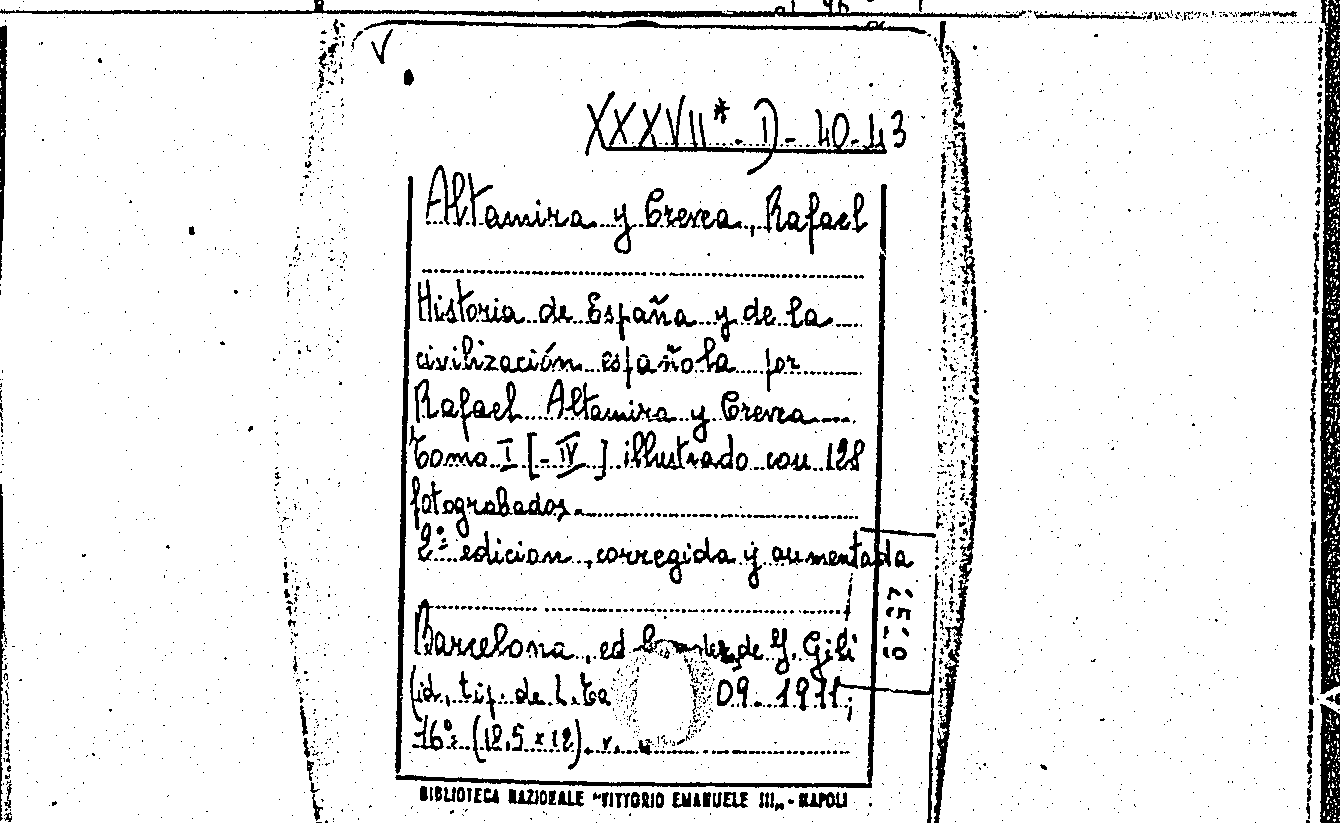 XXXVII* - D - 40-43
Altamira y Crevea, Rafael
Historia de España y de la
civilización española por
Rafael Altamira y Crevea
Tomo I [-IV] illustrado con 128
fotograbados.
2ª edicion, corregida y aumentada
Barcelona, ed de J. Gili
(id, tip. de L. Ta 09-1911;
16º: (18,5 x 12). v.
BIBLIOTECA NAZIONALE "VITTORIO EMANUELE III„ - NAPOLI